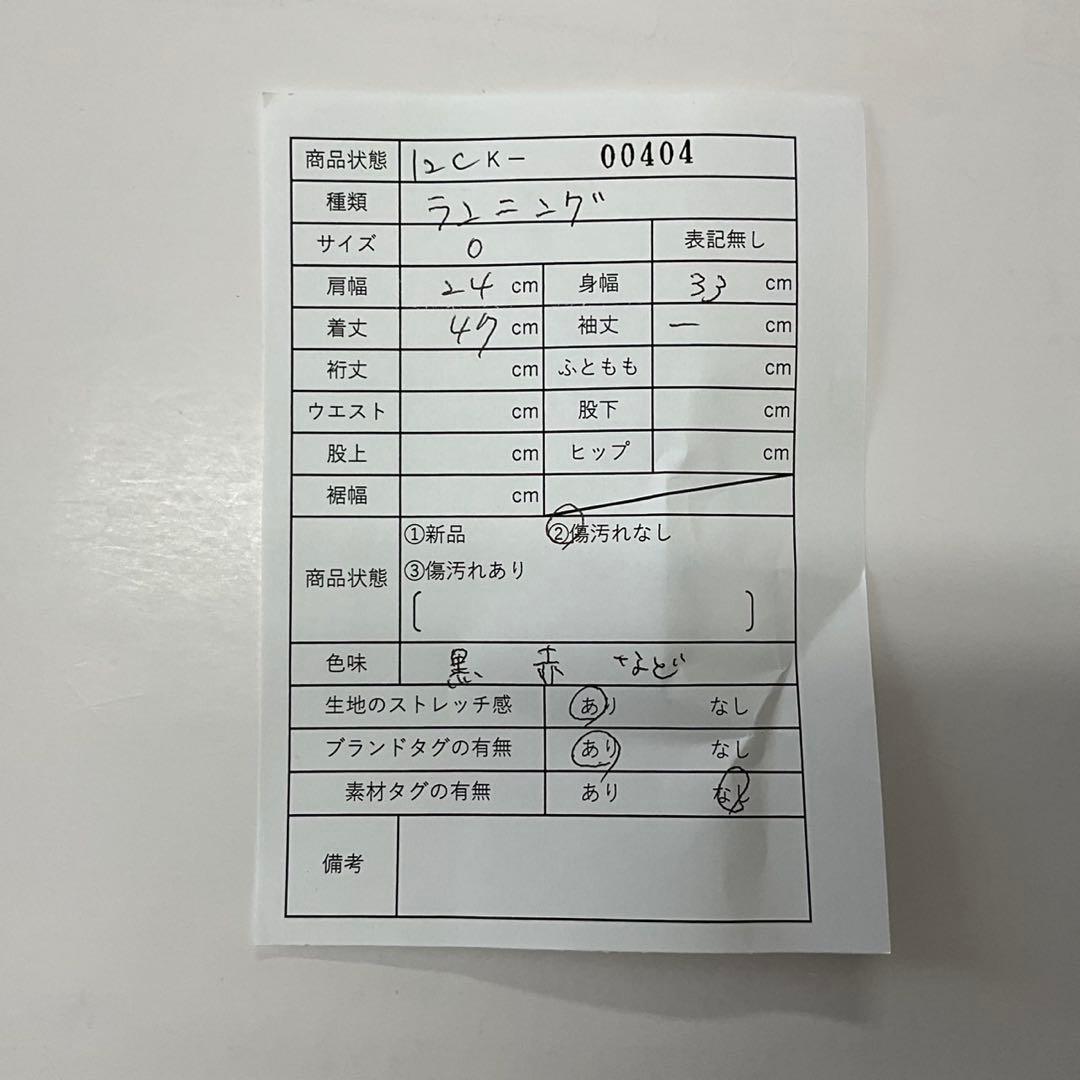 商品状態 12CK- 00404
種類 ランニング
サイズ 0 表記無し
肩幅 24 cm 身幅 33 cm
着丈 47 cm 袖丈 ー cm
裄丈 cm ふともも cm
ウエスト cm 股下 cm
股上 cm ヒップ cm
裾幅 cm
商品状態 ①新品 ②傷汚れなし
③傷汚れあり
[ ]
色味 黒 赤 など
生地のストレッチ感 あり なし
ブランドタグの有無 あり なし
素材タグの有無 あり なし
備考